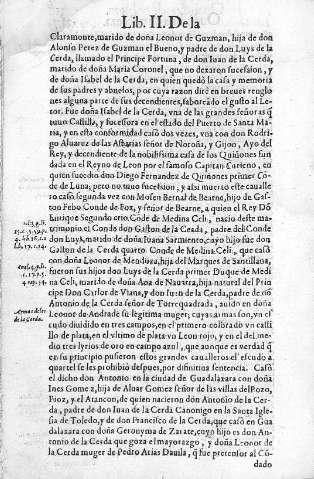 Lib. II. De la
Claramonte, marido de doña Leonor de Guzman, hija de don
Alonso Perez de Guzman el Bueno, y padre de don Luys de la
Cerda, llamado el Principe Fortuna, de don Iuan de la Cerda,
marido de doña Maria Coronel, que no dexaron sucession, y
de doña Isabel de la Cerda, en quien quedò la casa y memoria
de sus padres y abuelos, por cuya razon dirè en breues renglo
nes alguna parte de sus decendientes, saboreado el gusto al Le-
tor. Fue doña Isabel de la Cerda, vna de las grandes señoras q̃
tuuo Castilla, y sucessora en el estado del Puerto de Santa Ma
ria, y en esta conformidad casò dos vezes, vna con don Rodri
go Aluarez de las Asturias señor de Noroña, y Gijon, Ayo del
Rey, y decendiente de la nobilissima casa de los Quiñones fun
dada en el Reyno de Leon por el famoso Capitan
quien sucedio don Diego Fernandez de Quiñones primer Cõ
de de Luna; pero no tuuo sucession, y assi muerto este caualle
ro casò segunda vez con Mosen Bernal de Bearne, hijo de Gas-
ton Febo Conde de Fox, y señor de Bearne, a quien el Rey Dõ
Enrique Segundo erio Côde de Medina Celi, nacio deste ma-
trimonio el Condo don Gaston de la Cerda, padre del Conde
don Luys, marido de doña Iuana Sarmiento, cuyo hijo fue don
Gaston de la Cerda quarto Conde de Medina Celi, que casò
con doña Leonor de Mendoza, hija del Marques de Santillana,
fueron sus hijos don Luys de la Cerda primer Duque de Medi
na Celi, marido de doña Ana de Nauarra, hija natural del Princi
pe Don Carlos de Viana, y don Iuan de la Cerda, padre de dõ
Antonio de la Cerda señor de Torrequadrada, auido en doña
Leonor de Andrade su legitima muger; cuyas armas son, vn es
cudo diuidido en tres campos, en el primero colorado vn casti
llo de plata, en el vltimo de plata vn Leon rojo, y en el del me-
dio tres lyrios de oro en campo azul, que aunque es verdad q̃
en su principio pusieron estos grandes caualleros el escudo a
quartel se les prohibiò despues, por difinitiua sentencia. Casò
el dicho don Antonio en la ciudad de Guadalaxara con doña
Ines Gomez, hija de Aluar Gomez señor de las villas del Pozo,
Pioz, y el Atanzon, de quien nacieron don Antonio de la Cer-
da, padre de don Iuan de la Cerda Canonigo en la Santa Igle
sia de Toledo, y de don Francisco de la Cerda, que casò en Gua
dalaxara con doña Geronyma de Zarate, cuyo hijo es don An-
tonio de la Cerda que goza el mayorazgo, y doña Leonor de
la Cerda muger de Pedro Arias Dauila, q̃ fue pretensor al Cõ-
dado
Armas de los
de la Cerda.